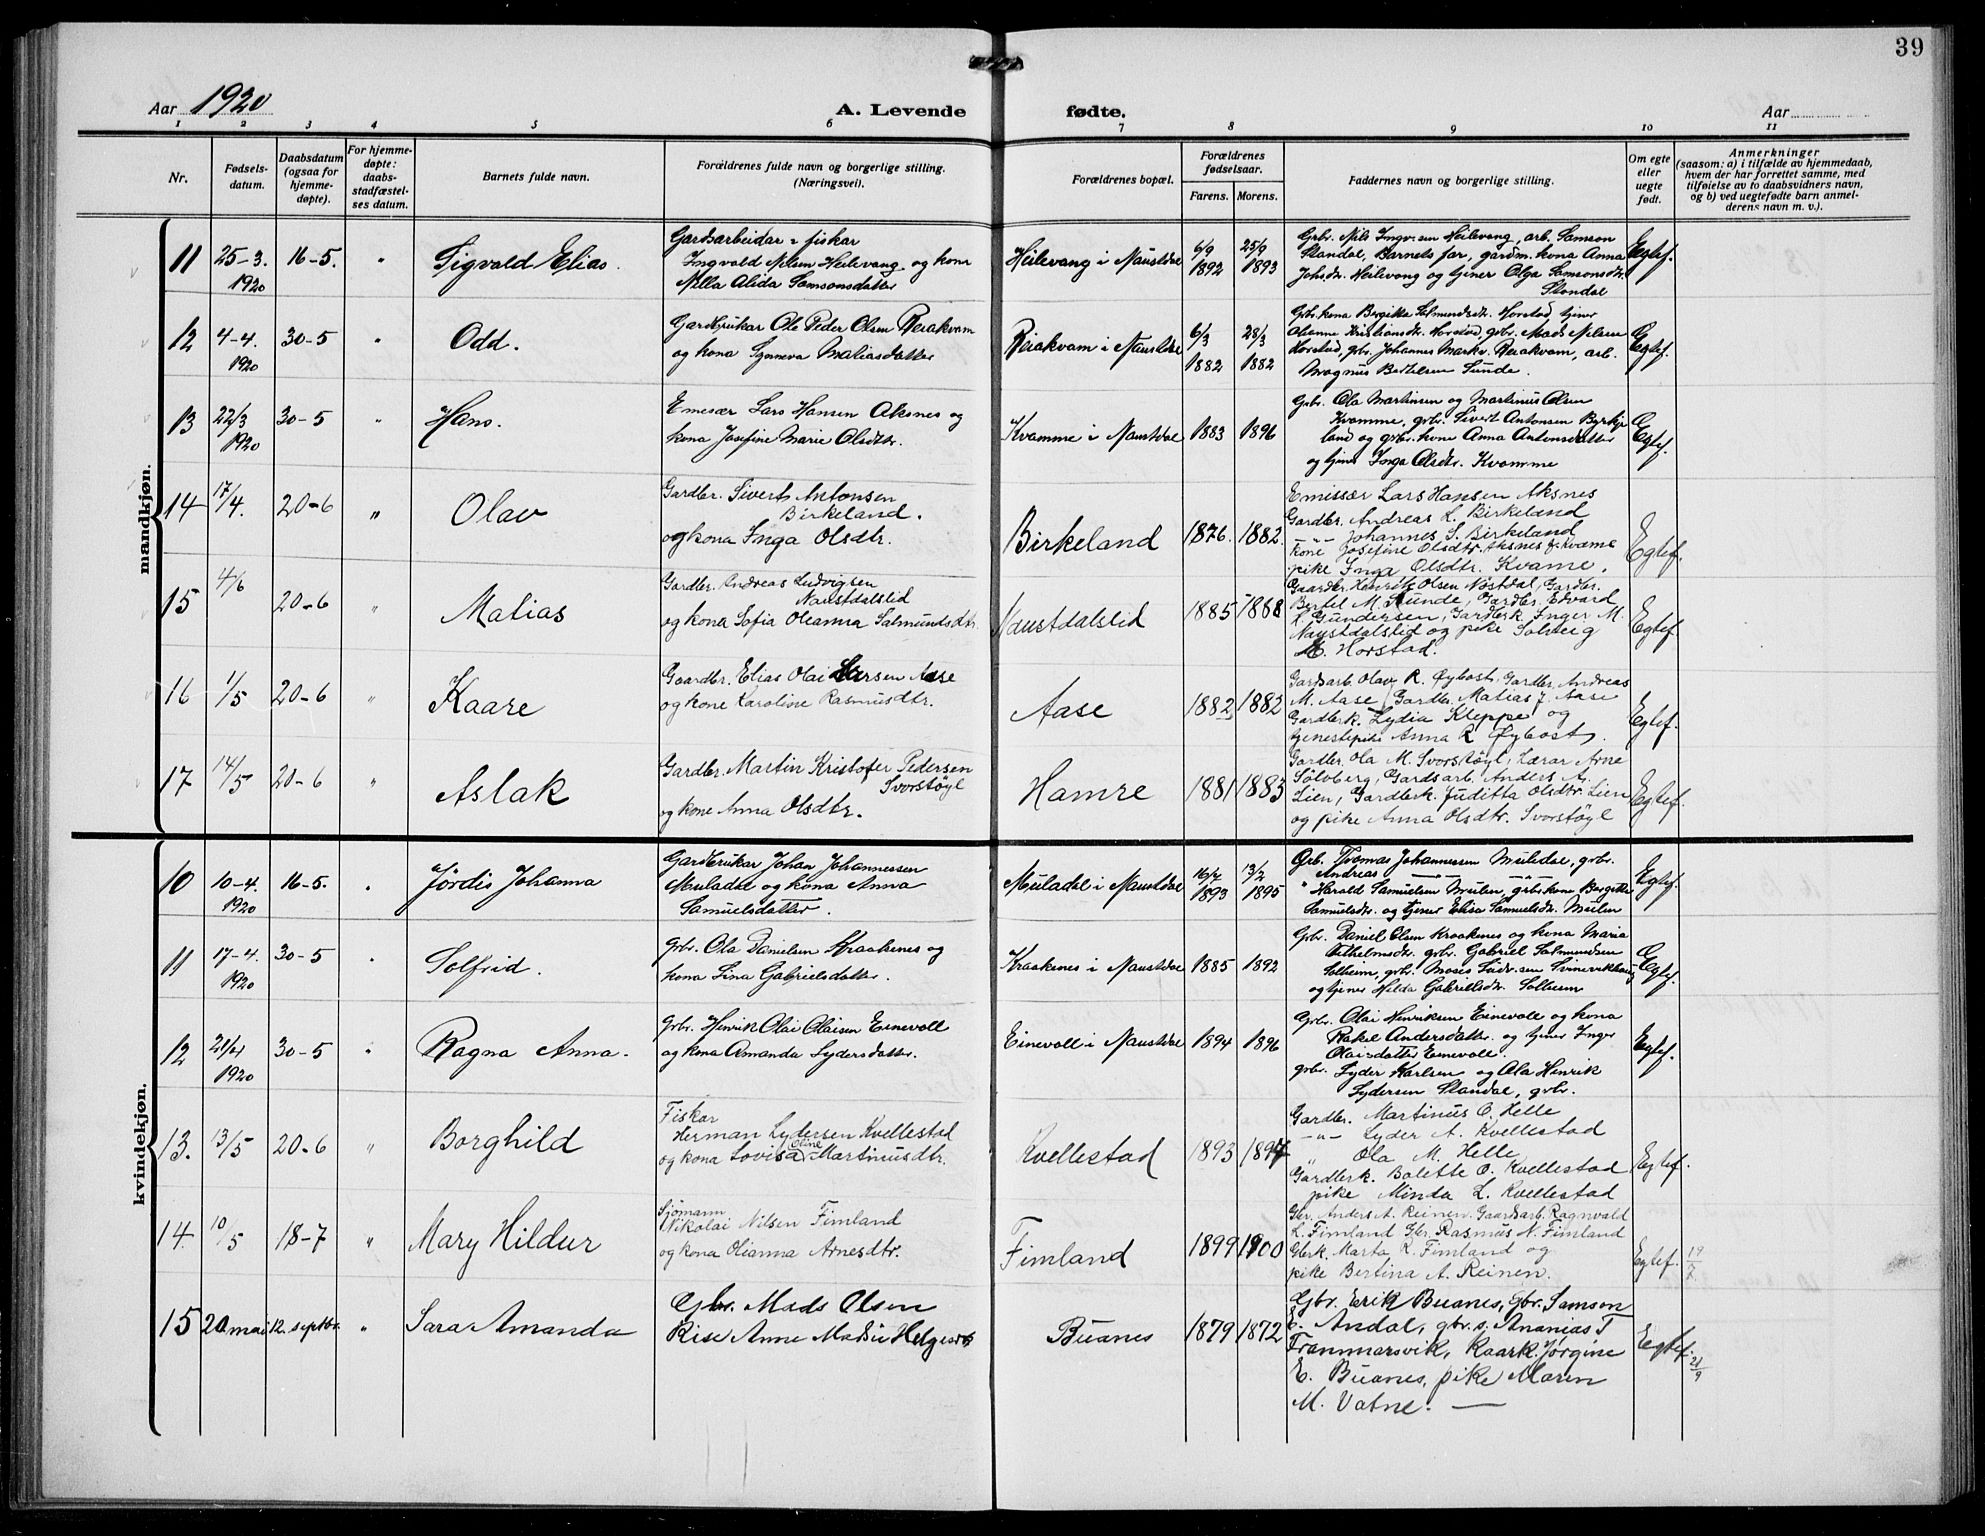 39
Aar 1920
A. Levende fødte.
Aar
1 2 3 4 5 6 7 8 9 10 11
Nr.
Fødsels-
datum.
Daabsdatum
(ogsaa for
hjemme-
døpte).
For hjemme-
døpte:
daabs-
stadfæstel-
ses datum.
Barnets fulde navn.
Forældrenes fulde navn og borgerlige stilling.
(Næringsvei).
Forældrenes bopæl.
Forældrenes
fødselsaar.
Farens. Morens.
Faddernes navn og borgerlige stilling.
Om egte
eller
uegte
født.
Anmerkninger
(saasom: a) i tilfælde av hjemmedaab,
hvem der har forrettet samme, med
tilføielse av to daabsvidners navn,
og b) ved uegtefødte barn anmel-
derens navn m. v.).
mandkjøn.
11 25-3. 1920 16-5. " Sigvald Elias.
Gardsarbeidar = fiskar
Ingvald Nilsen Heilevang og kona
Nilla Alida Samsonsdatter
Heilevang i Naustdal 6/9 1892 25/9 1893
Grbr. Nils Ingv.sen Heilevang, arb. Samson
Standal, Barnets far, gardm. kona Anna
Johsdtr. Heilevang og tjener Olga Samsonsdtr.
Standal
Egtef.
12 4-4. 1920 30-5 " Odd.
Gardbrukar Ole Peder Olsen Reiakvam
og kona Synneva Matiasdatter
Reiakvam i Naustdal 6/3 1882 28/3 1882
Grbr. kona Bergitte Salmundsdt. Horstad, tjener
Olianne Kristiansdtr. Horstad, grbr. Mads Nilsen
Horstad, grbr. Johannes Markv. Reiakvam, arb.
Magnus Bertelsen Sunde.
Egtef.
13 22/3 1920 30-5 " Hans.
Emesær Lars Hansen Aksnes og
kona Josefine Marie Olsdtr.
Kvamme i Naustdal 1883 1896
Grbr. Ola Martinsen og Martinius Olsen
Kvamme, grbr. Sivert Antonsen Byrkje
land og grbr. kone Anna Antonsdatter
og tjener Inga Olsdtr. Kvamme
Egtef.
14 17/4. 20-6 " Olav
Gardbr. Sivert Antonsen
Birkeland.
og kona Inga Olsdtr.
Birkeland 1876. 1882.
Emissær Lars Hansen Aksnes
Gardbr. Andreas L. Birkeland
-"- Johannes S. Birkeland
kone Josefine Olsdtr. Aksnes f. Kvame
pike Inga Olsdtr. Kvame.
Egtef.
15 4/6 20-6 " Matias
Gardbr. Andreas Ludvigsen
Naustdalslid
og kona Sofia Oleanna Salmundsdtr.
Naustdalslid 1885 1888
Gaardbr. Henrik Olsen Nøstdal, Gardbr.
Bertel M. Sunde, Gardbr. Edvard
L. Gundersen, Gardbrk. Inger M.
Naustdalslid og pike Solveig
M. Horstad.
Egtef.
16 1/5 20-6 " Kaare
Gaardbr. Elias Olai Larsen Aase
og kone Karoline Rasmusdtr.
Aase 1882 1882
Gardsarb. Olav R. Øybost, Gardbr. Andreas
M. Aase, Gardbr. Matias J. Aase
Gardbrk. Lydia Kleppe og
tjenestepike Anna R. Øybost.
Egtef.
17 14/5 20-6 " Aslak
Gardbr. Martin Kristofer Pedersen
Svorstøyl
og kone Anna Olsdtr.
Hamre 1881 1883
Gardbr. Ola M. Svorstøyl, Lærar Arne
Solvberg, Gardsarb. Anders A.
Lien, Gardbrk. Juditta Olsdtr. Lien
og pike Anna Olsdtr. Svorstøyl
Egtef.
kvindekjøn.
10 10-4. 1920 16-5. " Jørdis Johanna
Gardbrukar Johan Johannessen
Muladal og kona Anna
Samuelsdatter.
Muladal i Naustdal 16/7 1893 13/2 1895
Grb. Thomas Johannessen Muledal, grbr.
Andreas -"- -"-
" Harald Samuelsen Meilen, grbr. kone Bergitte
Samuelsdtr. og tjener Elisa Samuelsdtr. Meilen
Egtef.
11 17-4. 1920 30-5 " Solfrid.
Grbr. Ola Danielsen Kraakenes og
kona Lina Gabrielsdatter.
Kraakenes i Naustdal 1885 1892
Grbr. Daniel Olsen Kraakenes og kona Maria
Vilhelmsdtr. grbr. Gabriel Salmundsen
Solheim, grbr. Moses Sivr.sen Svinevikhaug
og tjener Hilda Gabrielsdtr. Solheim
Egtef.
12 21/4 1920 30-5 " Ragna Anna.
Grbr. Henrik Olai Olaisen Einevoll
og kona Amanda Lydersdatter.
Einevoll i Naustdal 1894 1896
Grbr. Olai Henriksen Einevoll og kona
Rakel Andersdatter og tjener Inger
Olaisdatter Einevoll.
grbr. Lyder Karlsen og Ola Henrik
Lydersen Standal, grbr.
Egtef.
13. 13/5 20-6 " Borghild
Fiskar
Herman Lydersen Kvellestad
og kona Lovisa Oline Martinusdtr.
Kvellestad 1893 1894
Gardbr. Martinus O. Helle
-"- Lyder A. Kvellestad
" Ola M. Helle
Gardbrk. Bolette O. Kvellestad
pike Minda L. Kvellestad
Egtef.
14. 10/5 18-7 " Mary Hildur
Sjømann
Nikolai Nilsen Fimland
og kona Olianna Arnesdtr.
Fimland 1899 1900
Gbr. Anders A. Reinen. Gaardsarb. Ragnvald
L. Fimland Gbr. Rasmus N. Fimland
Gbrk. Marta R. Fimland og
pike Bertina A. Reinen.
Egtef. 19/7
15 20 mai 12. septbr. " Sara Amanda
Gbr. Mads Olsen
Rise Anne Madsie Helgesen
Buanes 1879 1872
Gbr. Erik Buanes, Gbr. Samson
E. Andal, gbr.s. Ananias T
Frammarsvik, Kaark. Jørgine
E. Buanes, pike Maren
M. Vatne.
Egtef. 21/9